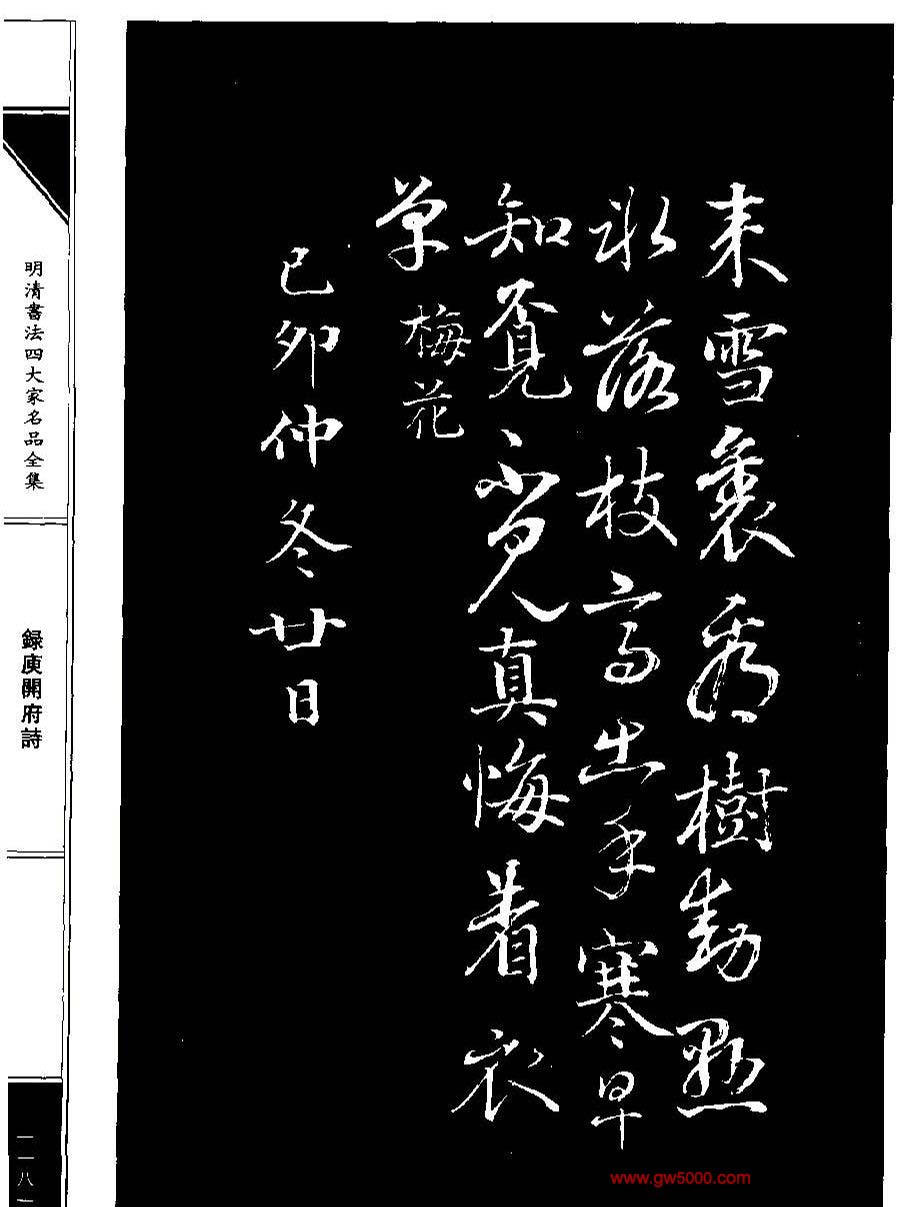 来雪裏看樹動懸
冰落枝高出手寒早
知覓不見真悔着衣
単
梅花
己卯仲冬廿日
明清書法四大家名品全集
録庾開府詩
www.gw5000.com